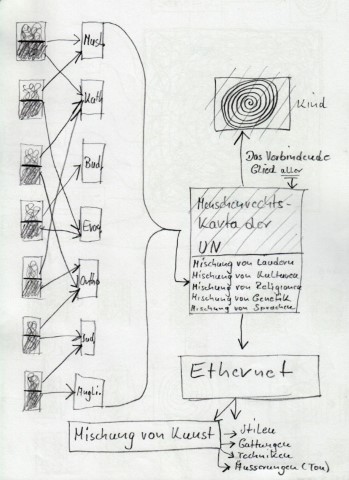 Musl.
Kath
Bud.
Evan
Ortho
Jud.
Anglik.
Kind
Das Verbindende
Glied aller
Menschenrechts-
Karta der
UN
Mischung von Ländern
Mischung von Kulturen
Mischung von Religionen
Mischung von Genetik
Mischung von Sprachen
Ethernet
Mischung von Kunst
Stilen
Gattungen
Techniken
Äusserungen (Ton)